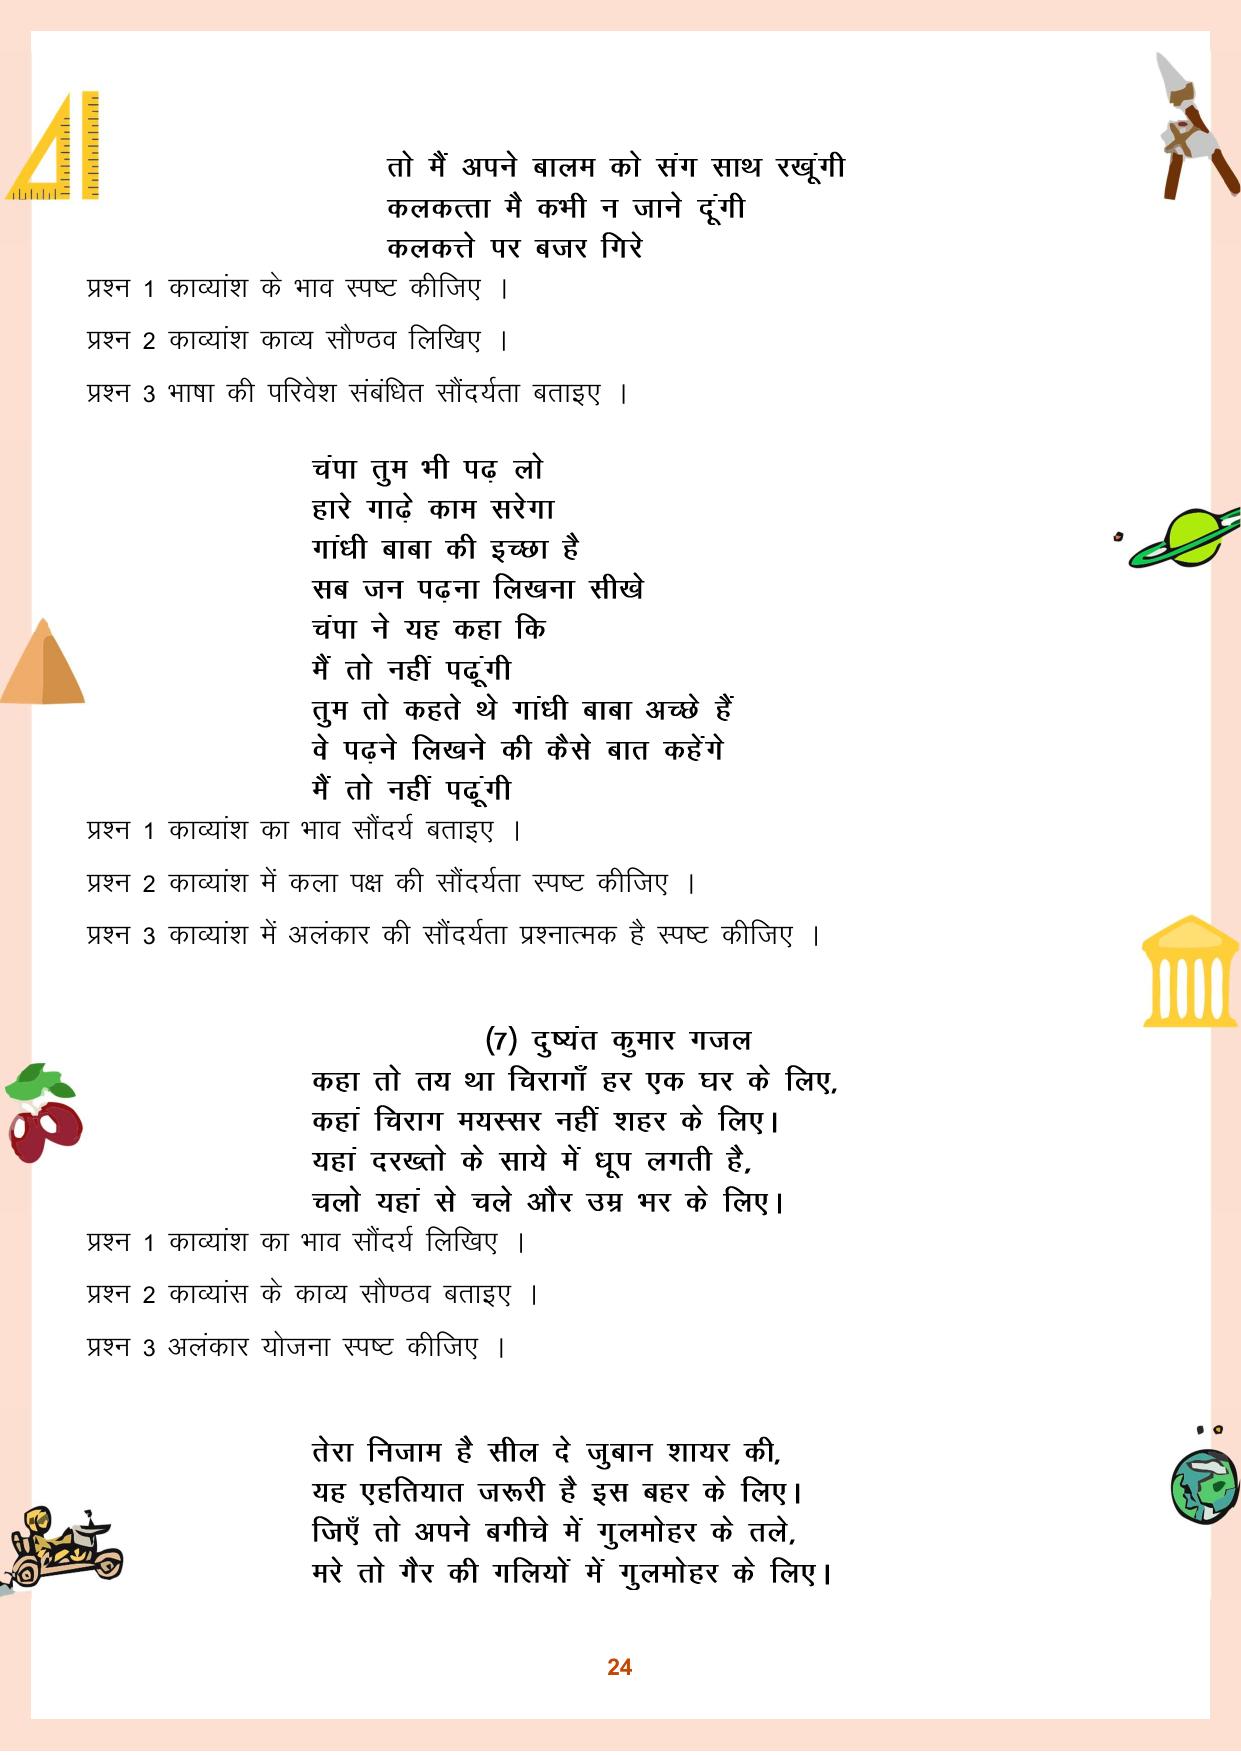 तो मैं अपने बालम को संग साथ रखूंगी
कलकत्ता मै कभी न जाने दूंगी
कलकत्ते पर बजर गिरे
प्रश्न 1 काव्यांश के भाव स्पष्ट कीजिए ।
प्रश्न 2 काव्यांश काव्य सौण्ठव लिखिए ।
प्रश्न 3 भाषा की परिवेश संबंधित सौंदर्यता बताइए ।
चंपा तुम भी पढ़ लो
हारे गाढ़े काम सरेगा
गांधी बाबा की इच्छा है
सब जन पढ़ना लिखना सीखे
चंपा ने यह कहा कि
मैं तो नहीं पढ़ूंगी
तुम तो कहते थे गांधी बाबा अच्छे हैं
वे पढ़ने लिखने की कैसे बात कहेंगे
मैं तो नहीं पढ़ूंगी
प्रश्न 1 काव्यांश का भाव सौंदर्य बताइए ।
प्रश्न 2 काव्यांश में कला पक्ष की सौंदर्यता स्पष्ट कीजिए ।
प्रश्न 3 काव्यांश में अलंकार की सौंदर्यता प्रश्नात्मक है स्पष्ट कीजिए ।
(7) दुष्यंत कुमार गजल
कहा तो तय था चिरागाँ हर एक घर के लिए,
कहां चिराग मयस्सर नहीं शहर के लिए।
यहां दरख्तो के साये में धूप लगती है,
चलो यहां से चले और उम्र भर के लिए।
प्रश्न 1 काव्यांश का भाव सौंदर्य लिखिए ।
प्रश्न 2 काव्यांस के काव्य सौण्ठव बताइए ।
प्रश्न 3 अलंकार योजना स्पष्ट कीजिए ।
तेरा निजाम है सील दे जुबान शायर की,
यह एहतियात जरूरी है इस बहर के लिए।
जिएँ तो अपने बगीचे में गुलमोहर के तले,
मरे तो गैर की गलियों में गुलमोहर के लिए।
24